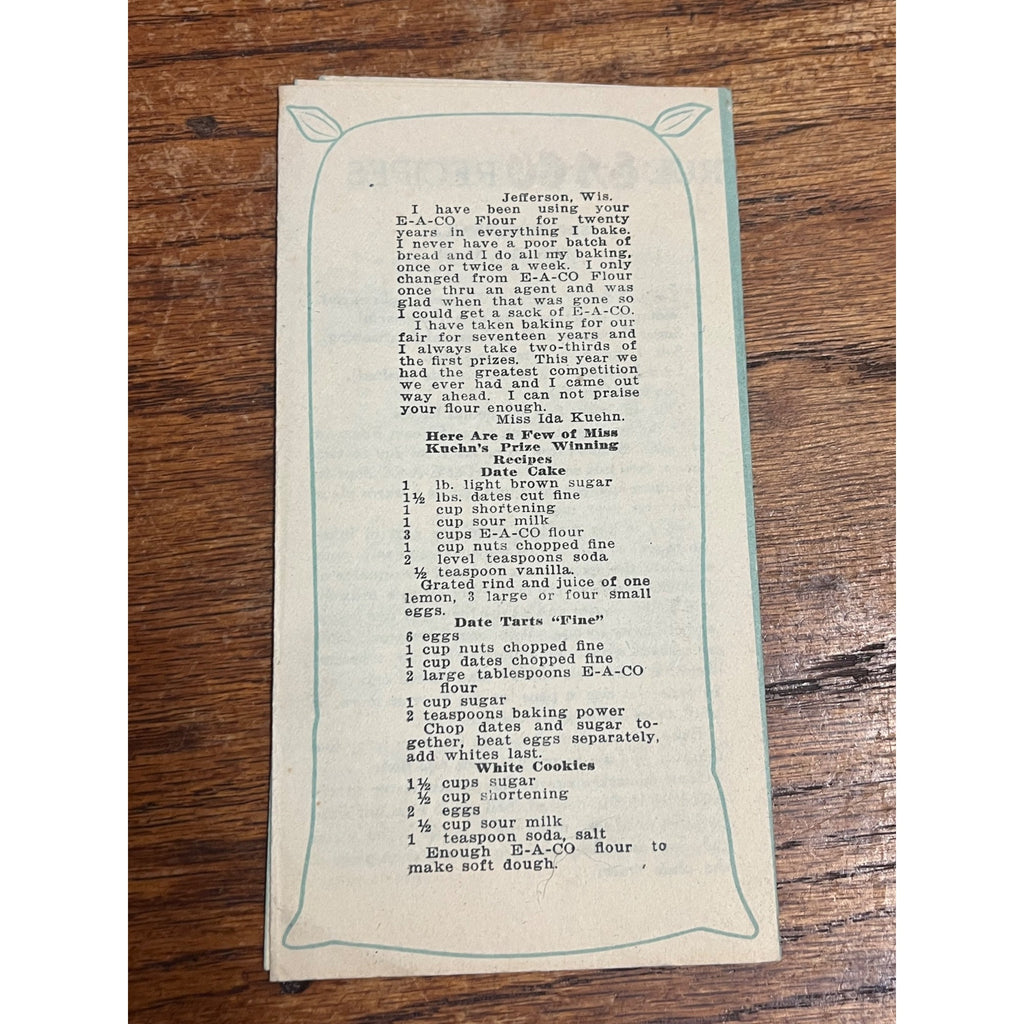 Jefferson, Wis.
I have been using your
E-A-CO Flour for twenty
years in everything I bake.
I never have a poor batch of
bread and I do all my baking,
once or twice a week. I only
changed from E-A-CO Flour
once thru an agent and was
glad when that was gone so
I could get a sack of E-A-CO.
I have taken baking for our
fair for seventeen years and
I always take two-thirds of
the first prizes. This year we
had the greatest competition
we ever had and I came out
way ahead. I can not praise
your flour enough.
Miss Ida Kuehn.
Here Are a Few of Miss
Kuehn's Prize Winning
Recipes
Date Cake
1 lb. light brown sugar
1½ lbs. dates cut fine
1 cup shortening
1 cup sour milk
3 cups E-A-CO flour
1 cup nuts chopped fine
2 level teaspoons soda
½ teaspoon vanilla.
Grated rind and juice of one
lemon, 3 large or four small
eggs.
Date Tarts "Fine"
6 eggs
1 cup nuts chopped fine
1 cup dates chopped fine
2 large tablespoons E-A-CO
flour
1 cup sugar
2 teaspoons baking power
Chop dates and sugar to-
gether, beat eggs separately,
add whites last.
White Cookies
1½ cups sugar
½ cup shortening
2 eggs
½ cup sour milk
1 teaspoon soda, salt
Enough E-A-CO flour to
make soft dough.